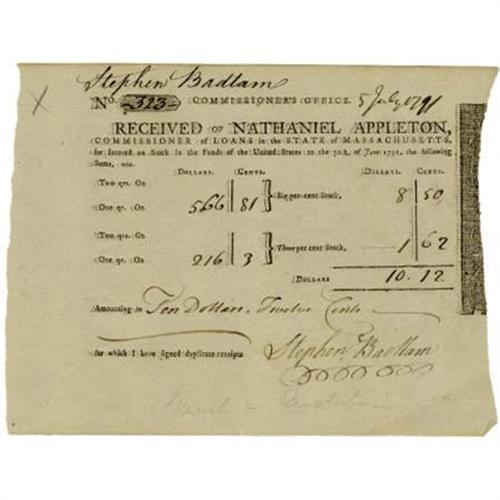 Stephen Badlam
No. 323 COMMISSIONER'S OFFICE. 5 July 1791
RECEIVED OF NATHANIEL APPLETON,
COMMISSIONER of LOANS in the STATE of MASSACHUSETTS,
for Interest on Stock in the Funds of the United States to the 30th. of June 1791, the following
Sums, viz.
DOLLARS. CENTS. DOLLARS. CENTS.
Two qrs. On
One qr. On 566 81 } Six per cent Stock, 8 50
Two qrs. On
One qr. On 216 3 } Three per cent Stock, 1 62
DOLLARS 10.12
Amounting to Ten Dollars, Twelve Cents
for which I have signed duplicate receipts Stephen Badlam